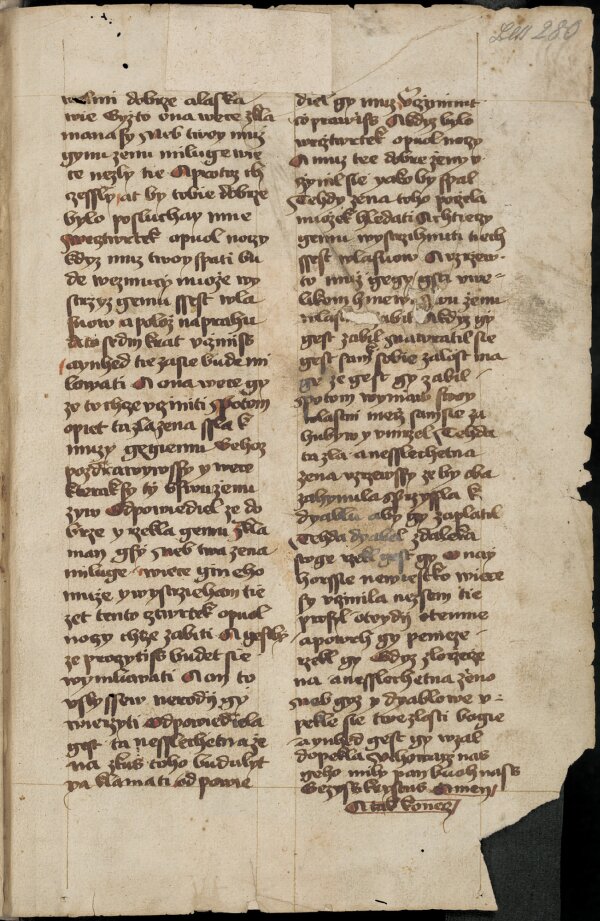 Len 280
welmi dobrze a laska
wie Gyzto ona wece zkla
mana sy neb twoy muz
gynu zenu miluge wie
ce nezly tie A protoz ch
zessly at by tobie dobrze
bylo posluchay mne
weztwrtek o puol noczy
kdyz muz twoy spati bu
de wezmucz muoze wy
strzyz gemu ssest wla
suow a poloz na prahu
a to sedm krat vczniss
a yhned tie zasie bude mi
lowati A ona wece gy
ze to chcze vcziniti Potom
opiet ta zla zena ssla k
muzy gegiemu Gehoz
pozdrawiwssy y wece
kterak sy ty bswu zenu
zyw Odpowiediel ze do
brze y rzekla gemu zkla
man gsy neb twa zena
miluge wiece gineho
muze y wystrziehan tie
zet tento cztwrtek o puol
noczy chcze zabiti A gestly
ze proczytiss budet sie
wymluwati A on to
vslyssew nerodil gy
wierzyti Odpowiediela
gest ta nesslechetna ze
na zkus toho budulyt
ya klamati odpowie
diel gy muz vczynimt
to prawiss A kdyz bylo
wecztwrtek o puol noczy
A muz tee dobre zeny v
czynil sie yako by spal
Tehdy zena toho poczela
muozek hledati A chtieczy
gemu wystrzihnuti tiech
ssest wlasuow A vzrzew
to muz gegy gsa vwe
likem hniew A zenu
zabil A kdyz gy
gest zabil nawratil sie
gest sam sobie zalost ma
ge ze gest gy zabil
Potom wynaw swoy
wlastni mecz sam sie za
hubyw y vmrzel Tehda
ta zla a nesslechetna
zena vzrzewssy ze by oba
zahynula Przyssla k
dyablu aby gy zaplatil
Tehda dyabel zdaleka
stoge rzekl gest gy O nay
horssie newiestko wiece
sy vczinila nezsem tie
prosyl otwydy otemne
a powrch gy penieze
rzekl gy Gdyz zlorzecze
na a nesslechetna zeno
neb gyz y dyablowe v
pekle sie twe zlosti bogie
a yhned gest gy wzal
do pekla Vchoway nas
geho mily pan buoh nass
Gezyss krystus Amen
A tak konecz